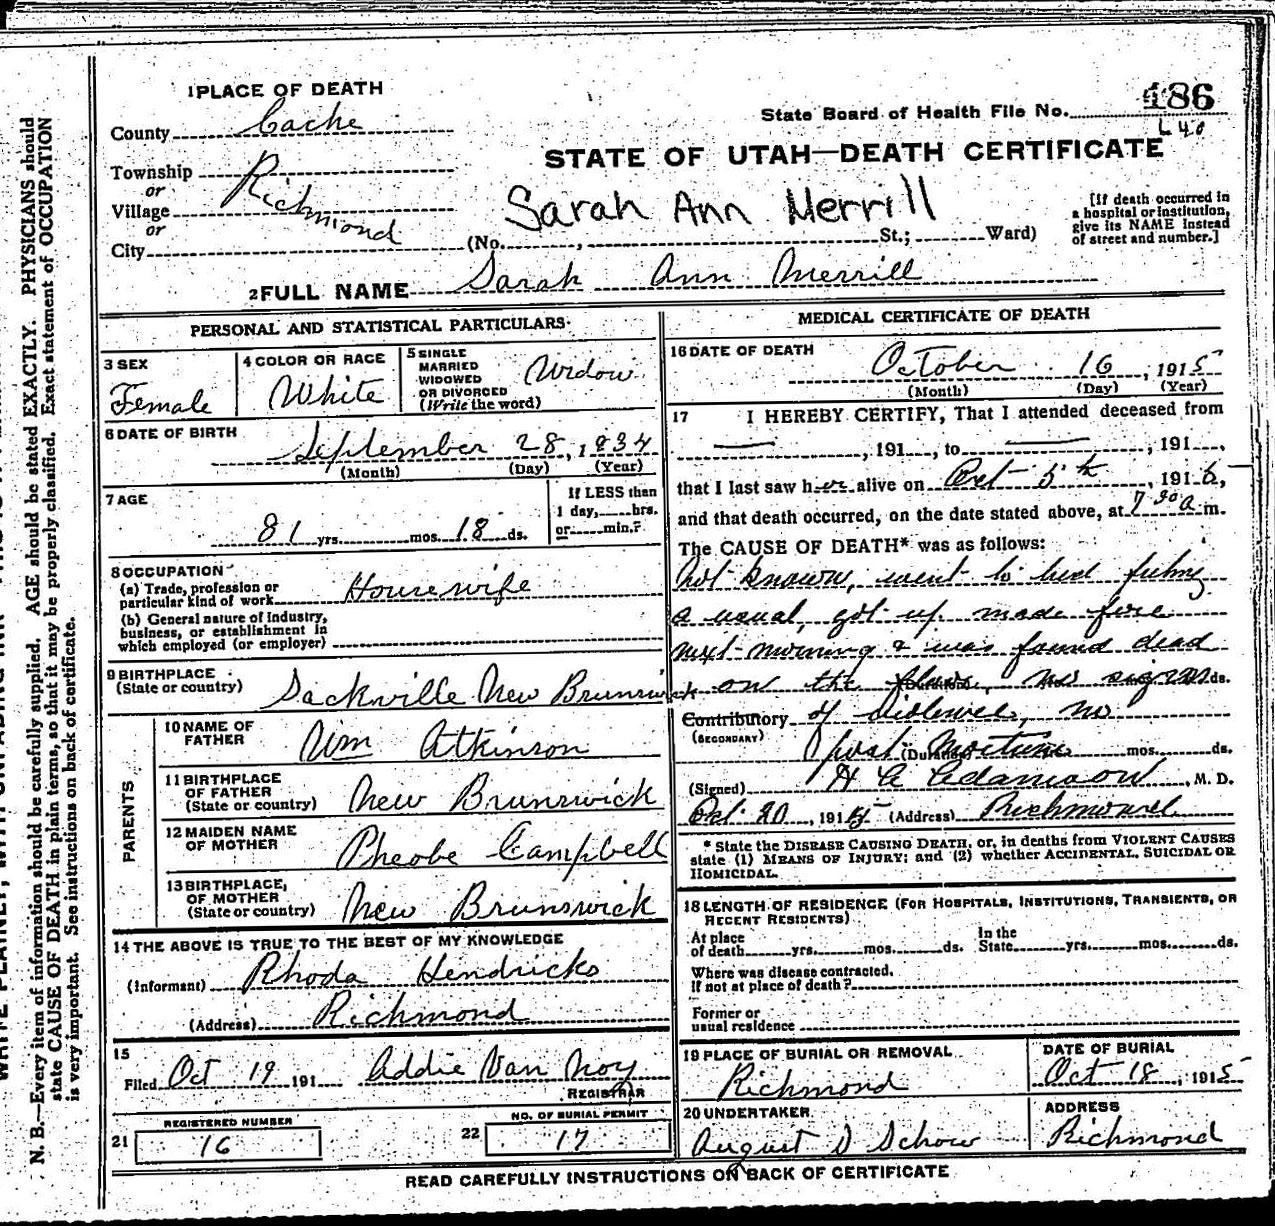 1 PLACE OF DEATH
County Cache
Township
or
Village Richmond
or
City
State Board of Health File No. 486
L 40
STATE OF UTAH—DEATH CERTIFICATE
Sarah Ann Merrill
(No. , St.; Ward)
[If death occurred in
a hospital or institution,
give its NAME instead
of street and number.]
2 FULL NAME Sarah Ann Merrill
PERSONAL AND STATISTICAL PARTICULARS
3 SEX
Female
4 COLOR OR RACE
White
5 SINGLE
MARRIED
WIDOWED
OR DIVORCED
(Write the word)
Widow
6 DATE OF BIRTH
September 28, 1834
(Month) (Day) (Year)
7 AGE
81 yrs. mos. 18 ds.
If LESS than
1 day, hrs.
or min.?
8 OCCUPATION
(a) Trade, profession or
particular kind of work Housewife
(b) General nature of industry,
business, or establishment in
which employed (or employer)
9 BIRTHPLACE
(State or country) Sackville New Brunswick
PARENTS
10 NAME OF
FATHER Wm Atkinson
11 BIRTHPLACE
OF FATHER
(State or country) New Brunswick
12 MAIDEN NAME
OF MOTHER Pheobe Campbell
13 BIRTHPLACE,
OF MOTHER
(State or country) New Brunswick
14 THE ABOVE IS TRUE TO THE BEST OF MY KNOWLEDGE
(Informant) Rhoda Hendricks
(Address) Richmond
15
Filed Oct 19 191 Addie Van Noy
REGISTRAR
21 REGISTERED NUMBER
16
22 NO. OF BURIAL PERMIT
17
MEDICAL CERTIFICATE OF DEATH
16 DATE OF DEATH
October 16, 1915
(Month) (Day) (Year)
17 I HEREBY CERTIFY, That I attended deceased from
, 191 , to , 191 ,
that I last saw her alive on Oct 5th, 191 ,
and that death occurred, on the date stated above, at 7 30 a m.
The CAUSE OF DEATH* was as follows:
Not known, went to bed
a usual, got up made fire
next morning & was found dead
on the floor, no signs ds.
Contributory of violence, no
(SECONDARY)
post mortum (Duration) mos. ds.
(Signed) H C Adamson, M. D.
Oct 20, 191 (Address) Richmond
* State the DISEASE CAUSING DEATH, or, in deaths from VIOLENT CAUSES
state (1) MEANS OF INJURY; and (2) whether ACCIDENTAL, SUICIDAL OR
HOMICIDAL.
18 LENGTH OF RESIDENCE (FOR HOSPITALS, INSTITUTIONS, TRANSIENTS, OR
RECENT RESIDENTS)
At place
of death yrs. mos. ds. In the
State yrs. mos. ds.
Where was disease contracted.
if not at place of death?
Former or
usual residence
19 PLACE OF BURIAL OR REMOVAL
Richmond
DATE OF BURIAL
Oct 18, 1915
20 UNDERTAKER
August D Schow
ADDRESS
Richmond
READ CAREFULLY INSTRUCTIONS ON BACK OF CERTIFICATE
N. B.—Every item of information should be carefully supplied. AGE should be stated EXACTLY. PHYSICIANS should
state CAUSE OF DEATH in plain terms, so that it may be properly classified. Exact statement of OCCUPATION
is very important. See instructions on back of certificate.